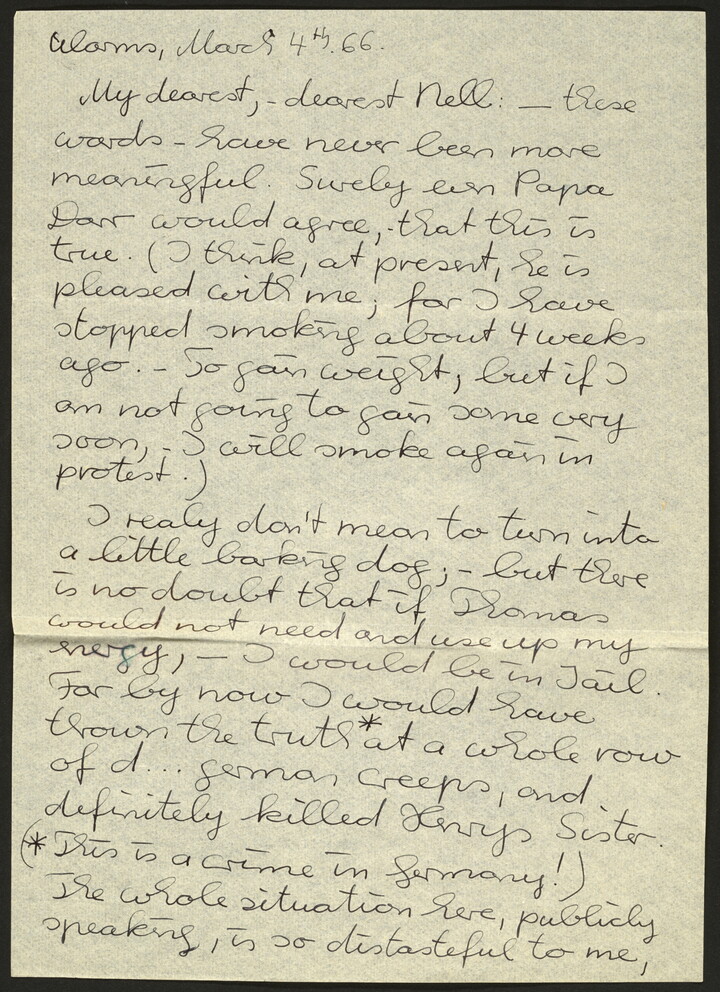 Worms, March 4th. 66.
My dearest, - dearest Nell: — these
words - have never been more
meaningful. Surely even Papa
Darr would agree, - that this is
true. (I think, at present, he is
pleased with me; for I have
stopped smoking about 4 weeks
ago. - To gain weight, but if I
am not going to gain some very
soon, - I will smoke again in
protest.)
I realy don't mean to turn into
a little barking dog; - but there
is no doubt that if Thomas
would not need and use up my
energy, — I would be in Jail.
For by now I would have
thrown the truth* at a whole row
of d... german creeps, and
definitely killed Henrys Sister.
(* This is a crime in Germany!)
The whole situation here, publicly
speaking, is so distasteful to me,